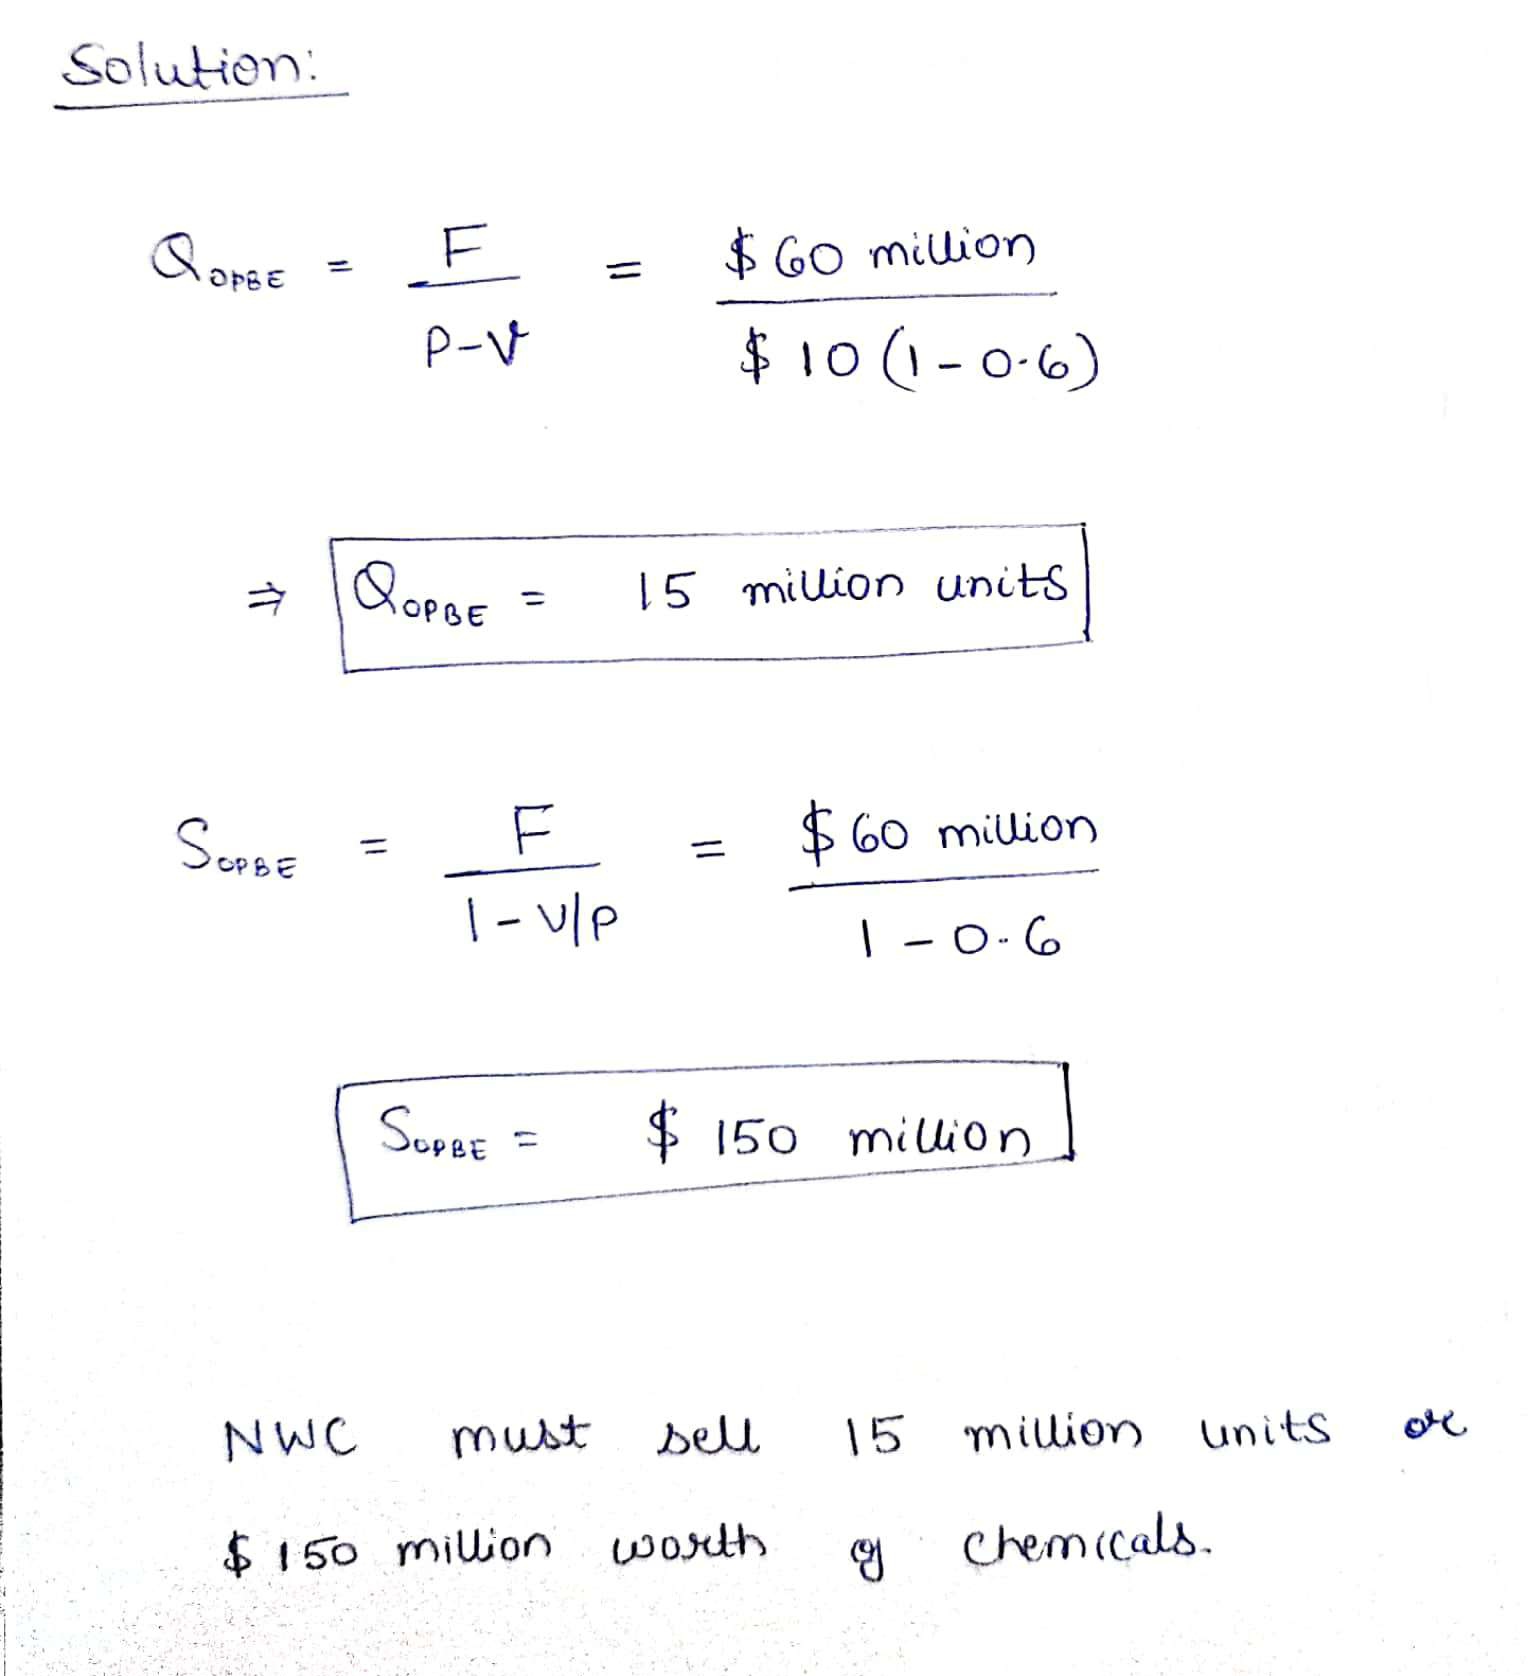 Solution:
Q OPBE = F / P-V = $ 60 million / $ 10 (1 - 0.6)
⇒ Q OPBE = 15 million units
S OPBE = F / 1 - V/P = $ 60 million / 1 - 0.6
S OPBE = $ 150 million
NWC must sell 15 million units or
$ 150 million worth of chemicals.